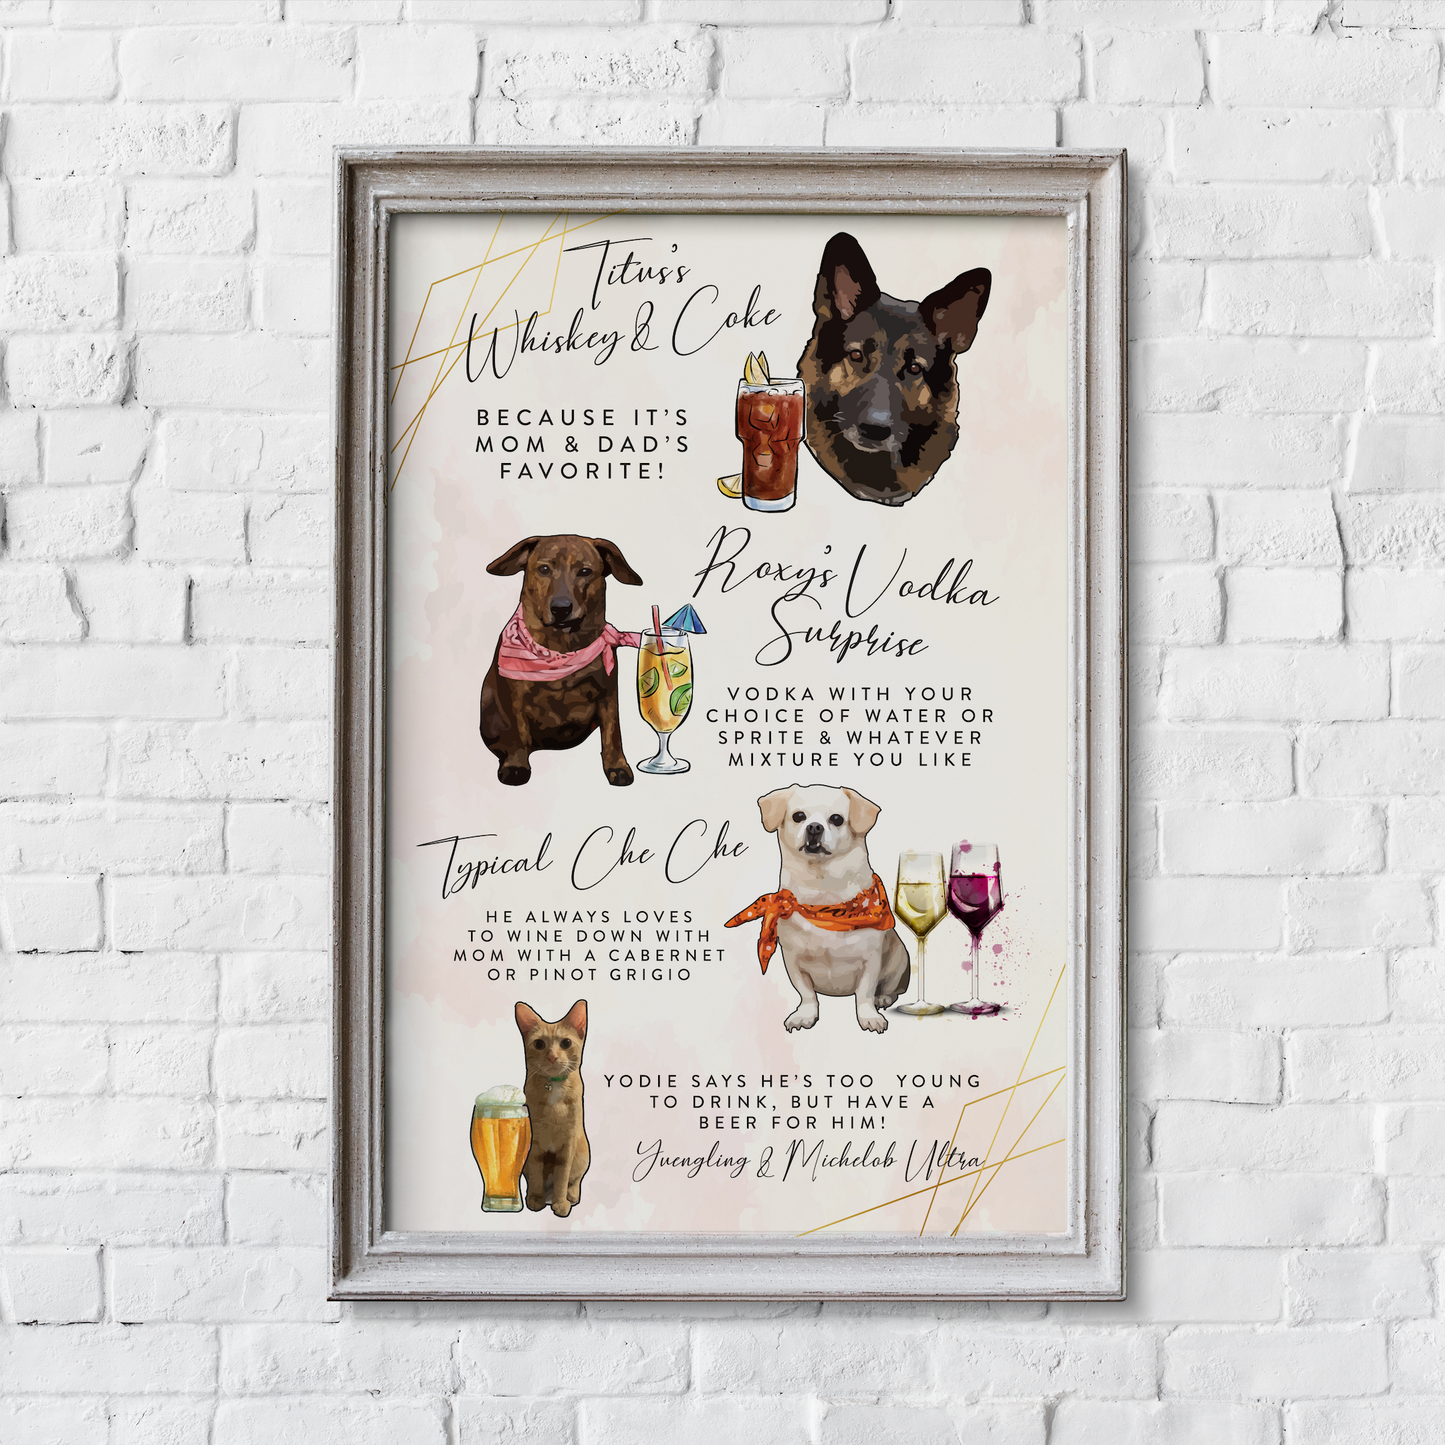 Titus's
Whiskey & Coke
BECAUSE IT'S
MOM & DAD'S
FAVORITE!
Roxy's Vodka
Surprise
VODKA WITH YOUR
CHOICE OF WATER OR
SPRITE & WHATEVER
MIXTURE YOU LIKE
Typical Che Che
HE ALWAYS LOVES
TO WINE DOWN WITH
MOM WITH A CABERNET
OR PINOT GRIGIO
YODIE SAYS HE'S TOO YOUNG
TO DRINK, BUT HAVE A
BEER FOR HIM!
Yuengling & Michelob Ultra